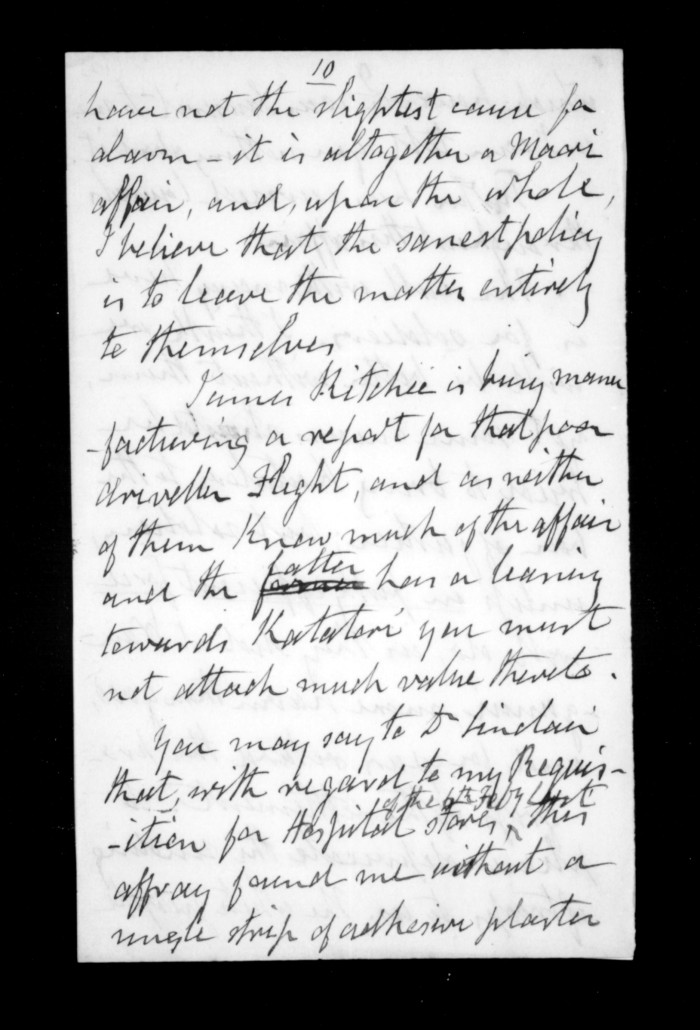 10
have not the slightest cause for
alarm - it is altogether a Maori
affair, and, upon the whole,
I believe that the sanest policy
is to leave the matter entirely
to themselves
James Ritchie is busy manu
-facturing a report for that poor
driveller Flight, and as neither
of them know much of the affair
latter
and the former has a leaning
towards Katatori you must
not attach much value thereto.
You may say to Dr Sinclair
that, with regard to my Requis-
of the 6th Feby last
-ition for Hospital stores, ^ this
affray found me without a
single strip of adhesive plaster